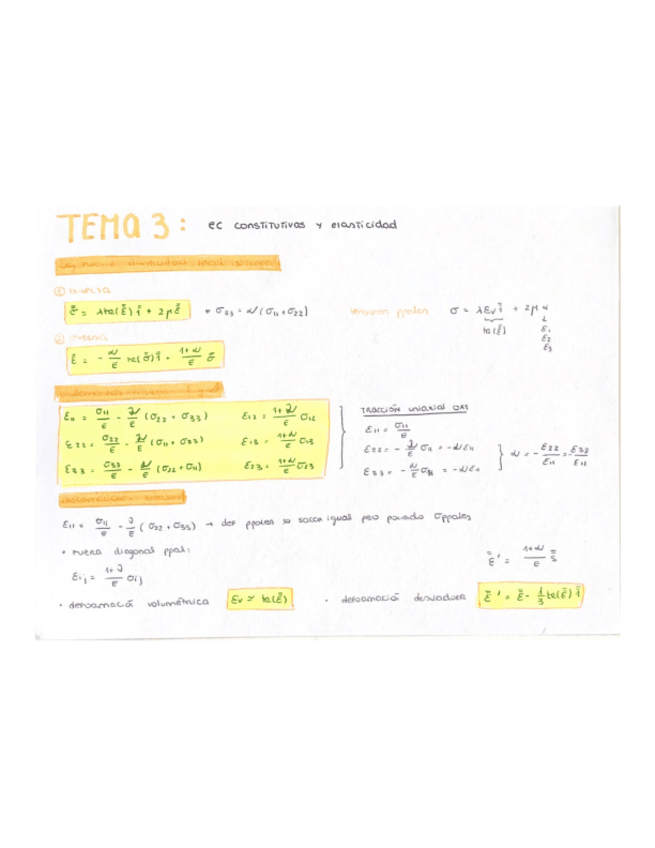 TEMA 3: ec constitutivas y elasticidad
① directa
σ̿ = λ tra(ε̿) 1̿ + 2μ ε̿
σ33 = ν (σ11 + σ22)
tensiones ppales σ = λ Ev 1̿ + 2μ
tra(ε̿)
ε1
ε2
ε3
② inversa
ε̿ = - ν/E tra(σ̿) 1̿ + 1+ν/E σ̿
ε11 = σ11/E - ν/E (σ22 + σ33) ε12 = 1+ν/E σ12
ε22 = σ22/E - ν/E (σ11 + σ33) ε13 = 1+ν/E σ13
ε33 = σ33/E - ν/E (σ22 + σ11) ε23 = 1+ν/E σ23
Tracción uniaxial
ε11 = σ11/E
ε22 = - ν/E σ11 = -νε11
ε33 = - ν/E σ11 = -νε11
ν = - ε22/ε11 = ε33/ε11
ε11 = σ11/E - ν/E (σ22 + σ33) → def ppales se sacan igual pero poniendo σppales
• fuera diagonal ppal:
εij = 1+ν/E σij
ε̿' = 1+ν/E s̿
• deformación volumétrica Ev ≃ tra(ε̿)
• deformación desviadora ε̿' = ε̿ - 1/3 tra(ε̿) 1̿